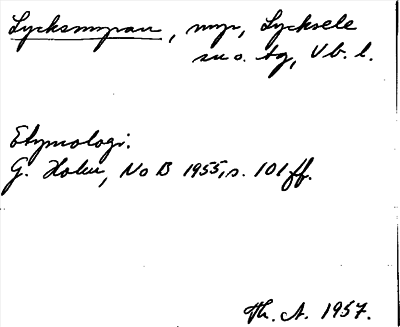 Lycksmyran, myr, Lycksele
sn o. tg, Vb. l.
Etymologi:
G. Holm, NoB 1955, s. 101 ff.
Th. A. 1957.